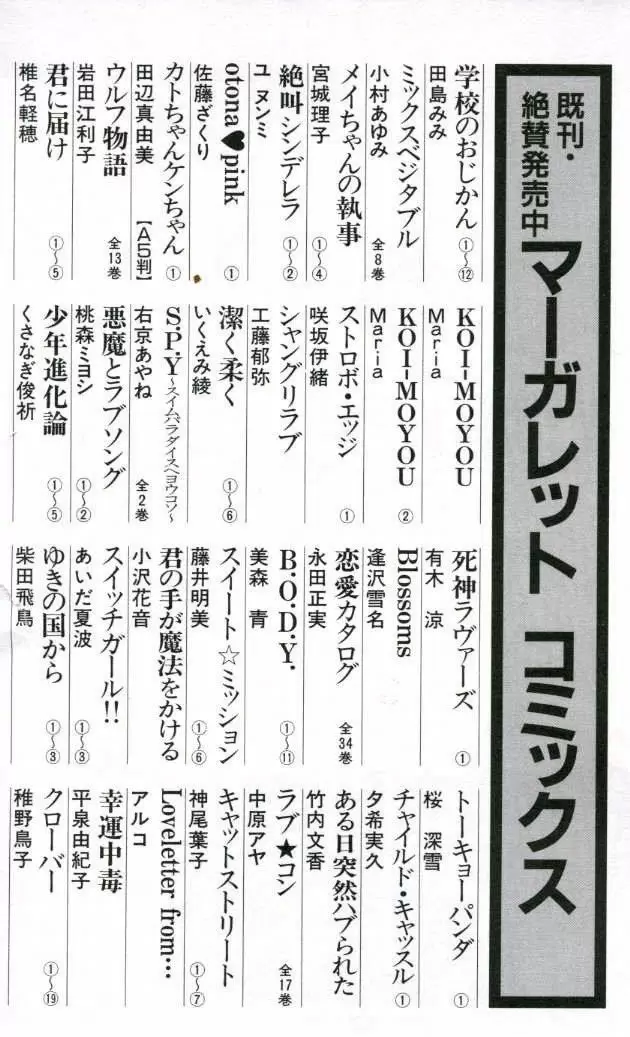 既刊・
絶賛発売中
マーガレット コミックス
学校のおじかん ①〜⑫
田島みみ
ミックスベジタブル 全8巻
小村あゆみ
メイちゃんの執事 ①〜④
宮城理子
絶叫シンデレラ ①〜②
ユ ヌンミ
otona♥pink ①
佐藤ざくり
カトちゃんケンちゃん ①
田辺真由美 【A5判】
ウルフ物語 全13巻
岩田江利子
君に届け ①〜⑤
椎名軽穂
KOI-MOYOU
Maria
KOI-MOYOU ②
Maria
ストロボ・エッジ ①
咲坂伊緒
シャングリラブ
工藤郁弥
潔く柔く ①〜⑥
いくえみ綾
S.P.Y〜スイムパラダイスへヨウコソ〜
右京あやね 全2巻
悪魔とラブソング ①〜②
桃森ミヨシ
少年進化論 ①〜⑤
くさなぎ俊祈
死神ラヴァーズ ①
有木 涼
Blossoms
逢沢雪名
恋愛カタログ 全34巻
永田正実
B.O.D.Y. ①〜⑪
美森 青
スイート☆ミッション ①〜⑥
藤井明美
君の手が魔法をかける
小沢花音
スイッチガール!! ①〜③
あいだ夏波
ゆきの国から ①〜③
柴田飛鳥
トーキョーパンダ ①
桜 深雪
チャイルド・キャッスル ①
夕希実久
ある日突然ハブられた
竹内文香
ラブ★コン 全17巻
中原アヤ
キャットストリート ①〜⑦
神尾葉子
Loveletter from…
アルコ
幸運中毒
平泉由紀子
クローバー ①〜⑲
稚野鳥子